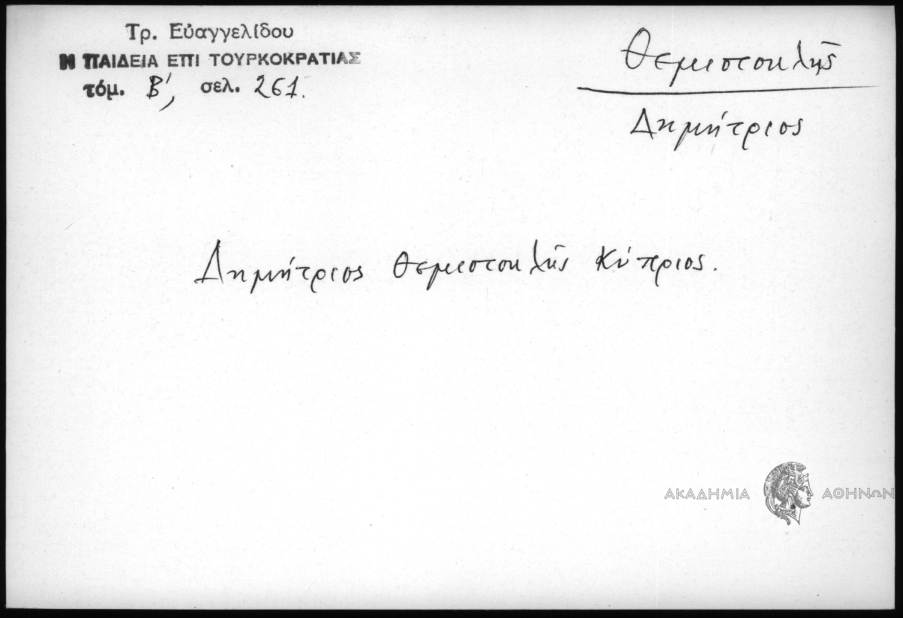 Τρ. Εὐαγγελίδου
Η ΠΑΙΔΕΙΑ ΕΠΙ ΤΟΥΡΚΟΚΡΑΤΙΑΣ
τόμ. Β', σελ. 261.
Θεμιστοκλῆς
Δημήτριος
Δημήτριος Θεμιστοκλῆς Κύπριος.
ΑΚΑΔΗΜΙΑ ΑΘΗΝΩΝ